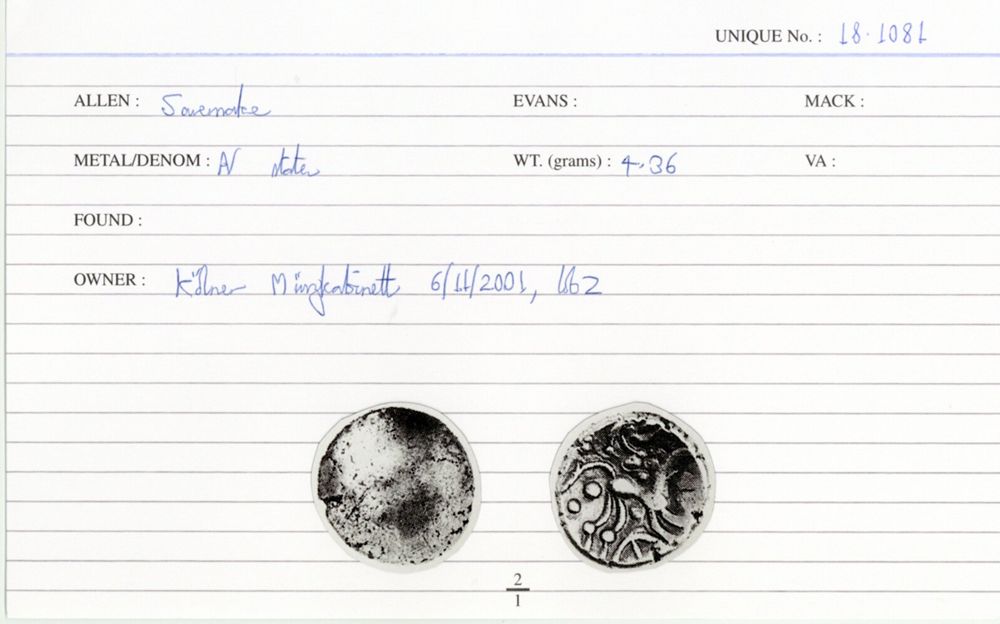 UNIQUE No. : 18.1081
ALLEN : Savernake EVANS : MACK :
METAL/DENOM : AV stater WT. (grams) : 4.36 VA :
FOUND :
OWNER : Kölner Münzkabinett 6/11/2001, 162
2
1